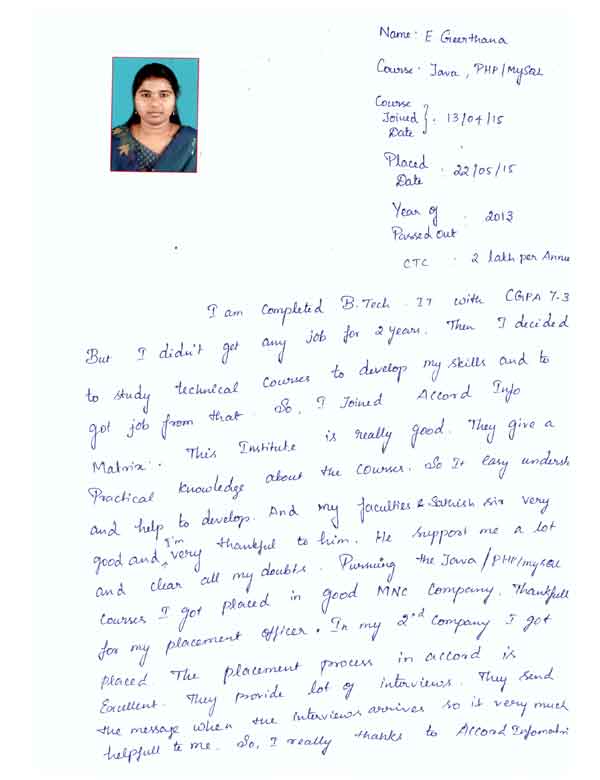 Name: E Geerthana
Course: Java, PHP/MySQL
Course Joined Date } : 13/04/15
Placed Date : 22/05/15
Year of Passed out : 2013
CTC : 2 lakh per Annu
I am completed B.Tech - IT with CGPA 7.3
But I didn't get any job for 2 years. Then I decided
to study technical courses to develop my skills and to
got job from that. So, I Joined Accord Info
Matrix. This Institute is really good. They give a
Practical knowledge about the courses. So It easy underst
and help to develop. And my faculties & Sathish sir very
good and I'm very thankful to him. He support me a lot
and clear all my doubts. Pursuing the Java/PHP/mysql
courses I got placed in good MNC Company. Thankfull
for my placement officer. In my 2nd company I got
placed. The placement process in accord is
Excellent. They provide lot of interviews. They send
the message when the interviews arrives so it very much
helpfull to me. So, I really thanks to Accord Infomatri